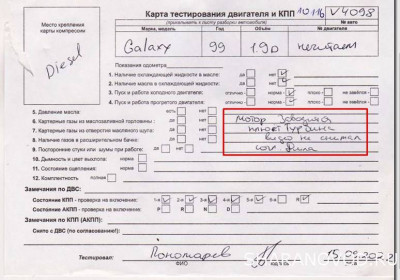 Карта тестирования двигателя и КПП 10116 V4098
(прикалывать к листу разборки автомобиля)
№ авто
Место крепления
карты компрессии
Diesel
Марка
Год
Объём
№ двигателя
Galaxy
99
1.9D
нечитаем
Показания одометра
1. Наличие охлаждающей жидкости в масле: есть нет
2. Наличие масла в охлаждающей жидкости: есть нет
3. Пуск и работа холодного двигателя: отлично норма плохо не завёлся
4. Пуск и работа прогретого двигателя: отлично норма плохо не завёлся
5. Давление масла: есть нет
6. Картерные газы из маслозаливной горловины:
7. Картерные газы из отверстия масляного щупа:
8. Наличие газов в расширительном бачке:
9. Посторонние стуки или шумы при работе: да нет
10. Дымность и цвет выхлопа: норма
11. Состояние сцепления: норма
12. Комплектность: полная
мотор заводной
не снимал
Замечания по ДВС:
Состояние КПП - проверка на включение: 1-я 2-я 3-я 4-я 5-я R
Состояние АКПП - проверка на включение: P R N D
Замечания по КПП (АКПП):
Снято с ДВС (по согласованию!).
Тестировал: Пономарев
ФИО
подпись
дата
SHARANOVOD.RU